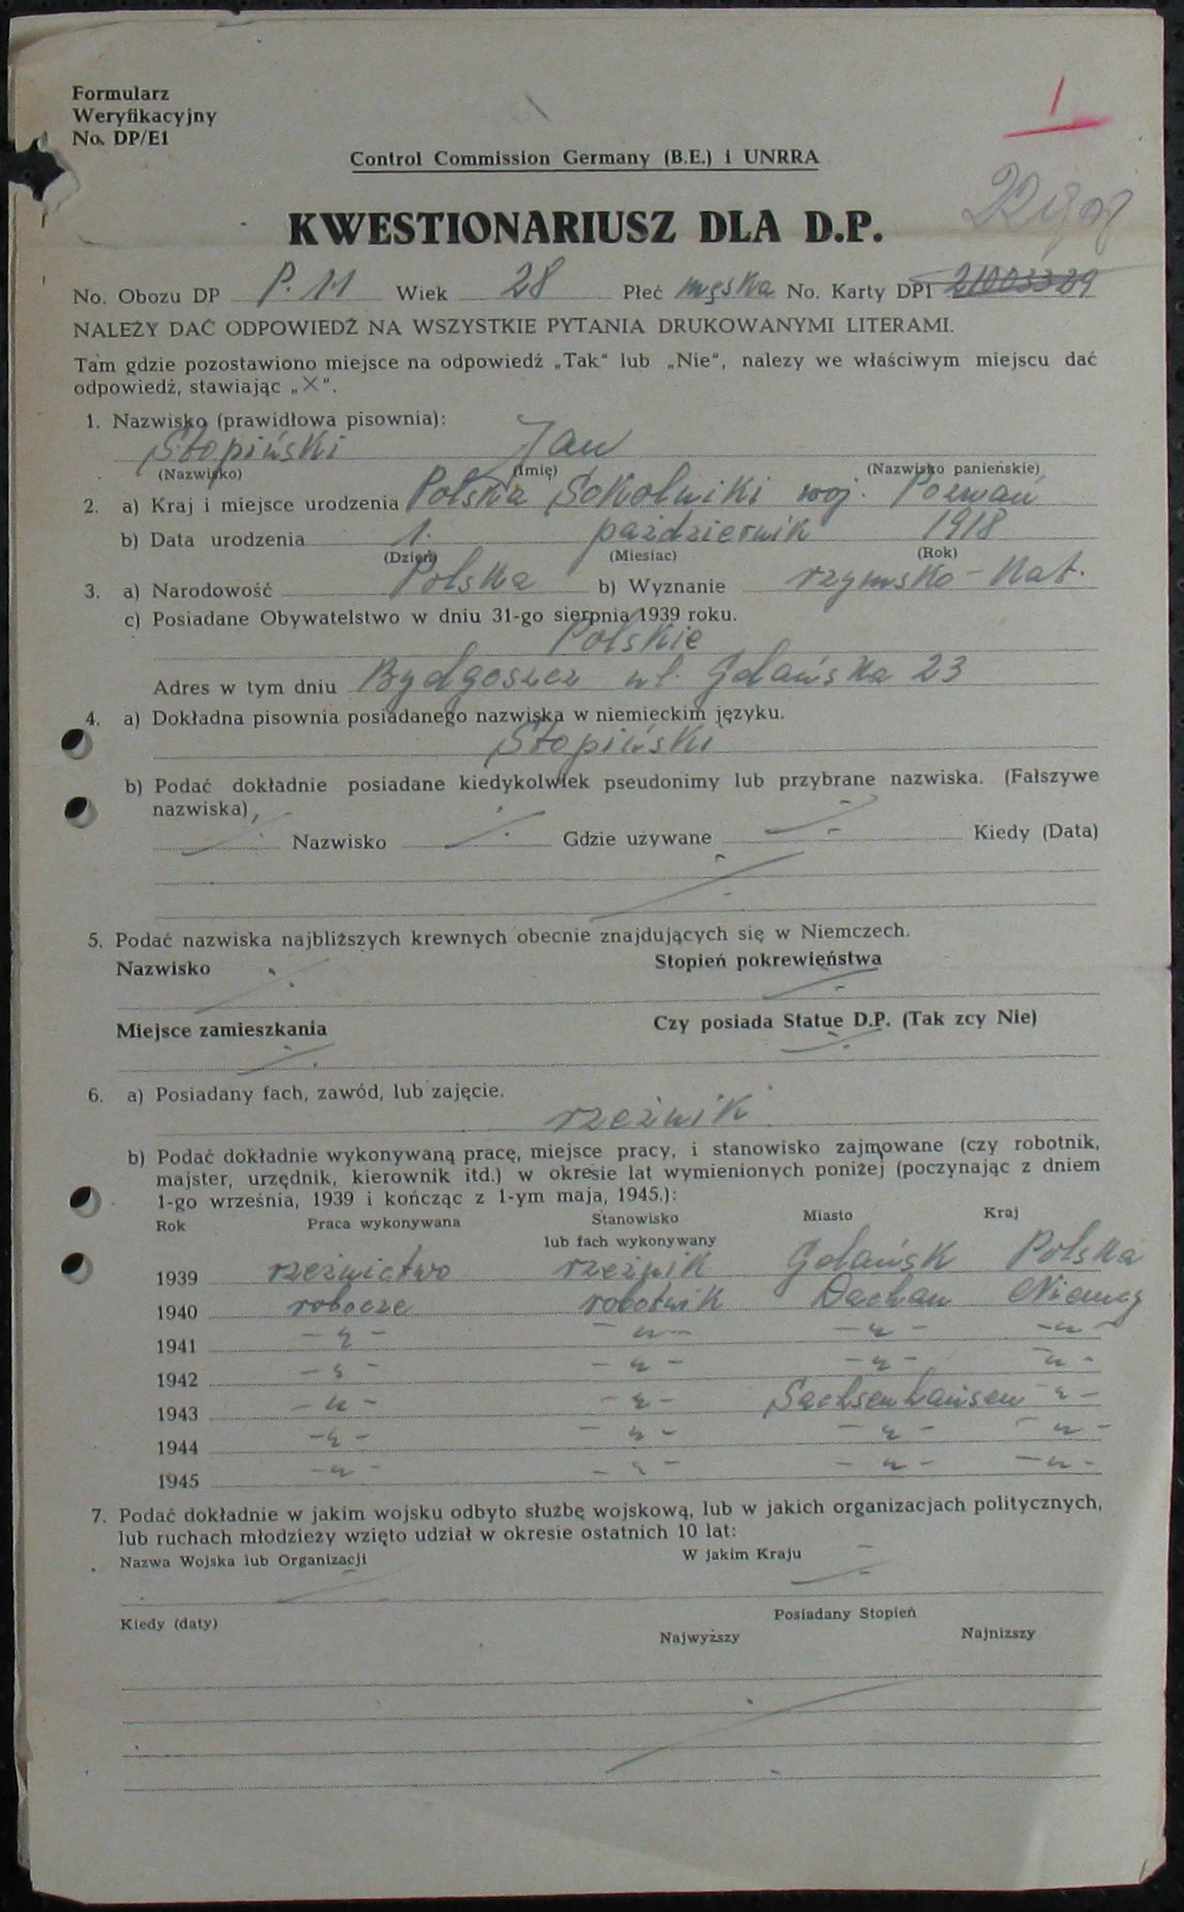 Formularz
Weryfikacyjny
No. DP/E1
1
Control Commission Germany (B.E.) i UNRRA
KWESTIONARIUSZ DLA D.P.
No. Obozu DP P. 11 Wiek 28 Płeć męska No. Karty DP1
NALEŻY DAĆ ODPOWIEDŹ NA WSZYSTKIE PYTANIA DRUKOWANYMI LITERAMI.
Tam gdzie pozostawiono miejsce na odpowiedź „Tak" lub „Nie", nalezy we właściwym miejscu dać
odpowiedź, stawiając „X".
1. Nazwisko (prawidłowa pisownia):
Stopiński Jan
(Nazwisko) (Imię) (Nazwisko panieńskie)
2. a) Kraj i miejsce urodzenia Polska Sokolniki woj. Poznań
b) Data urodzenia 1. październik 1918
(Dzień) (Miesiac) (Rok)
3. a) Narodowość Polska b) Wyznanie rzymsko-kat.
c) Posiadane Obywatelstwo w dniu 31-go sierpnia 1939 roku.
Polskie
Adres w tym dniu Bydgoszcz ul. Gdańska 23
4. a) Dokładna pisownia posiadanego nazwiska w niemieckim języku.
Stopiński
b) Podać dokładnie posiadane kiedykolwiek pseudonimy lub przybrane nazwiska. (Fałszywe
nazwiska),
Nazwisko Gdzie używane Kiedy (Data)
5. Podać nazwiska najbliższych krewnych obecnie znajdujących się w Niemczech.
Nazwisko Stopień pokrewieństwa
Miejsce zamieszkania Czy posiada Statue D.P. (Tak zcy Nie)
6. a) Posiadany fach, zawód, lub zajęcie.
rzeźnik
b) Podać dokładnie wykonywaną pracę, miejsce pracy, i stanowisko zajmowane (czy robotnik,
majster, urzędnik, kierownik itd.) w okresie lat wymienionych poniżej (poczynając z dniem
1-go września, 1939 i kończąc z 1-ym maja, 1945.):
Rok Praca wykonywana Stanowisko Miasto Kraj
lub fach wykonywany
1939 rzeźnictwo rzeźnik Gdańsk Polska
1940 robocze robotnik Dachau Niemcy
1941 -"- -"- -"- -"-
1942 -"- -"- -"- -"-
1943 -"- -"- Sachsenhausen -"-
1944 -"- -"- -"- -"-
1945 -"- -"- -"- -"-
7. Podać dokładnie w jakim wojsku odbyto służbę wojskową, lub w jakich organizacjach politycznych,
lub ruchach młodzieży wzięto udział w okresie ostatnich 10 lat:
Nazwa Wojska lub Organizacji W jakim Kraju
Kiedy (daty) Posiadany Stopień
Najwyższy Najniższy